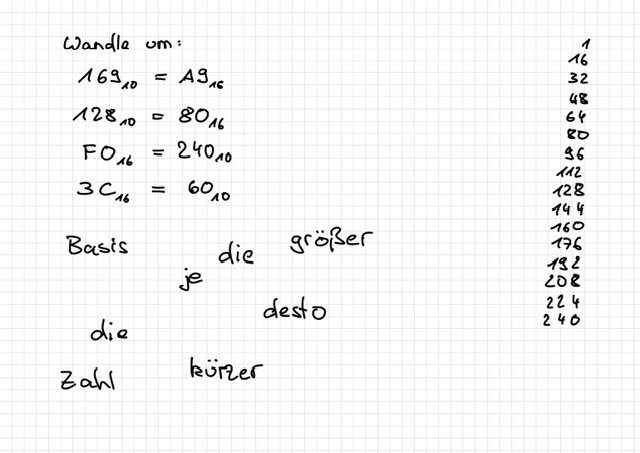 Wandle um:
169₁₀ = A9₁₆
128₁₀ = 80₁₆
F0₁₆ = 240₁₀
3C₁₆ = 60₁₀
Basis die größer
je
desto
die
Zahl kürzer
1
16
32
48
64
80
96
112
128
144
160
176
192
208
224
240